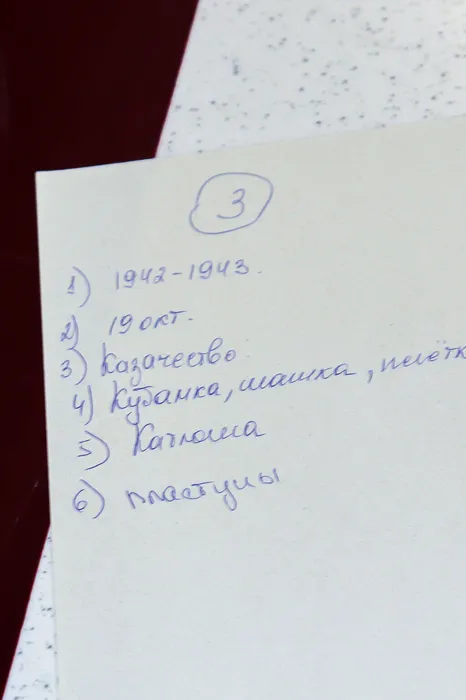 3
1) 1942-1943.
2) 19 окт.
3) Казачество
4) Кубанка, шашка, плётка
5) Качлома
6) пластуны